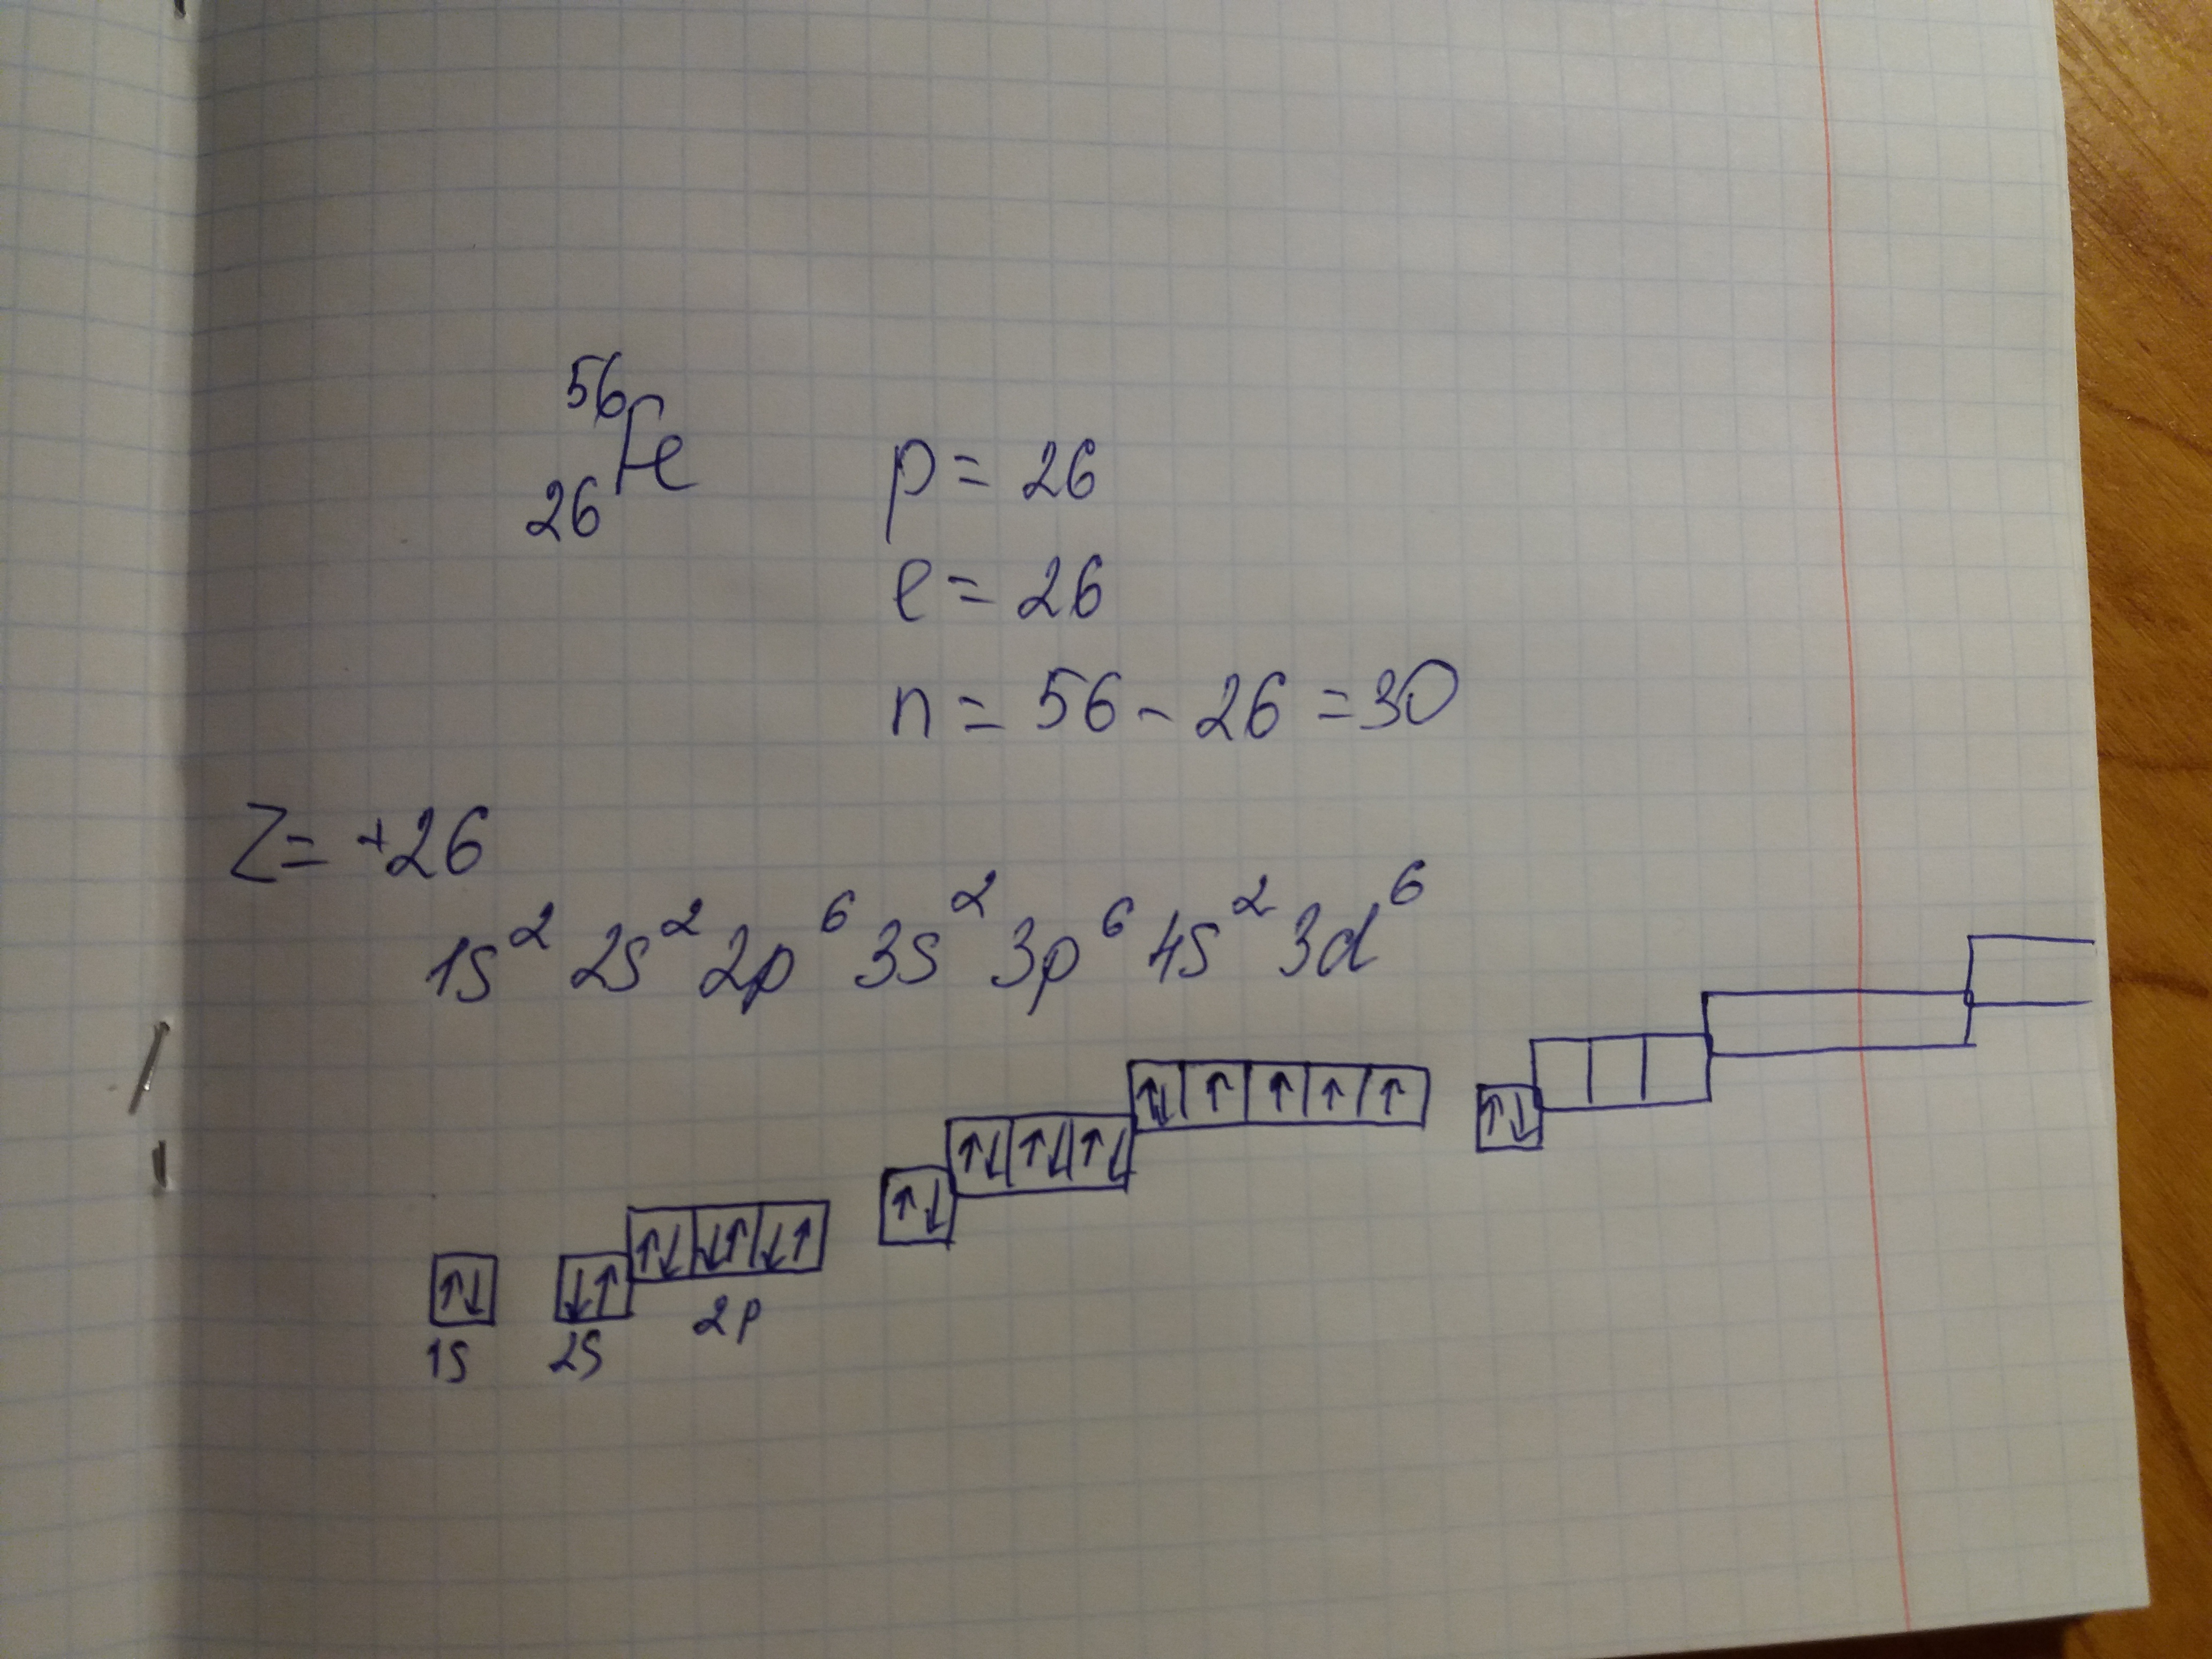 56
Fe
26
p = 26
e = 26
n = 56 - 26 = 30
Z = +26
1s² 2s² 2p⁶ 3s² 3p⁶ 4s² 3d⁶
↑↓ ↓↑ ↑↓ ↓↑ ↓↑ ↑↓ ↑↓ ↑↓ ↑↓ ↑↓ ↑ ↑ ↑ ↑ ↑↓
1s 2s 2p